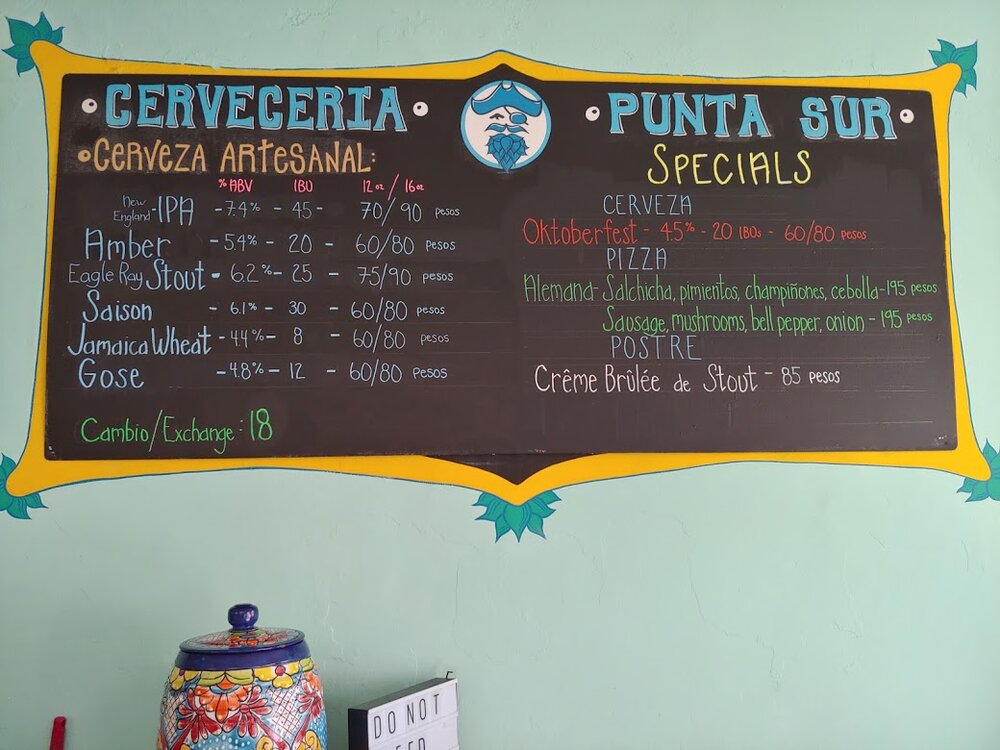 CERVECERIA
PUNTA SUR
CERVEZA ARTESANAL:
% ABV IBU 12oz/16oz
New England - IPA - 7.4% - 45 - 70/90 pesos
Amber - 5.4% - 20 - 60/80 pesos
Eagle Ray Stout - 6.2% - 25 - 75/90 pesos
Saison - 6.1% - 30 - 60/80 pesos
Jamaica Wheat - 4.4% - 8 - 60/80 pesos
Gose - 4.8% - 12 - 60/80 pesos
Cambio/Exchange: 18
SPECIALS
CERVEZA
Oktoberfest - 4.5% - 20 IBUs - 60/80 pesos
PIZZA
Alemana - Salchicha, pimientos, champiñones, cebolla - 195 pesos
Sausage, mushrooms, bell pepper, onion - 195 pesos
POSTRE
Crême Brûlée de Stout - 85 pesos
DO NOT